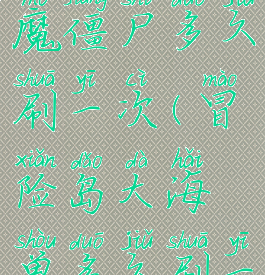 魔僵尸多久
shuā yī cì mào
刷一次(冒
xiǎn dǎo dà hǎi
险岛大海
shòu duō jiǔ shuā yī
兽多久刷一